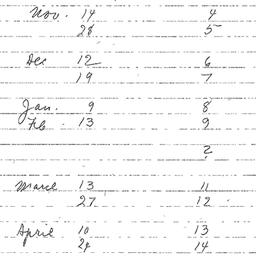 Nov. 14 4
28 5
Dec 12 6
19 7
Jan. 9 8
Feb 13 9
2
March 13 11
27 12
April 10 13
24 14